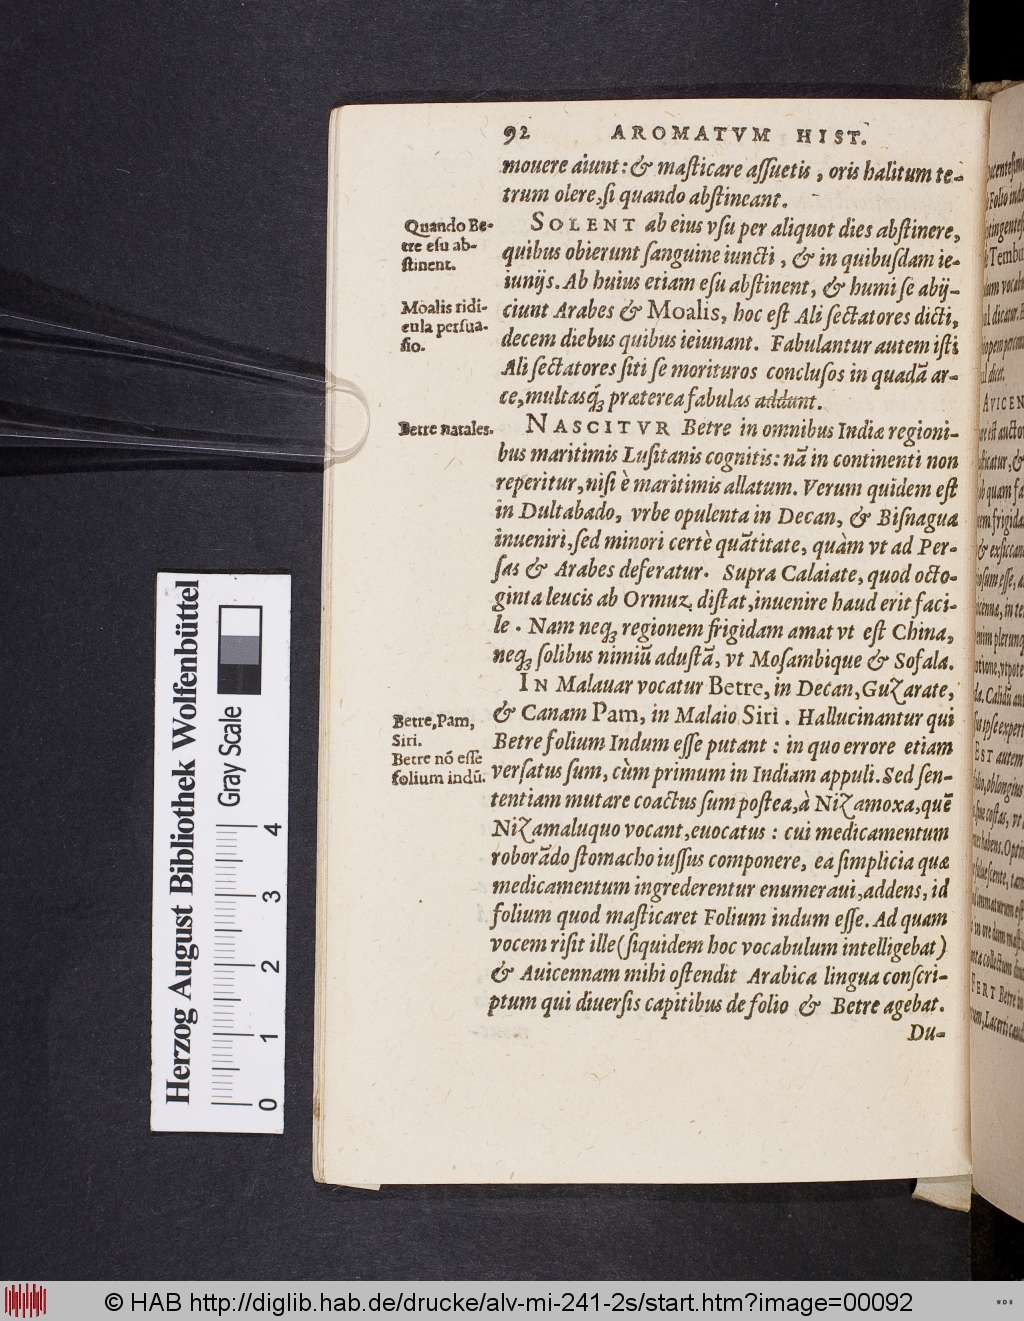 92 AROMATVM HIST.
mouere aiunt: & maſticare aſſuetis, oris halitum te-
trum olere, ſi quando abſtineant.
Quando Be-
tre eſu ab-
ſtinent.
SOLENT ab eius vſu per aliquot dies abſtinere,
quibus obierunt ſanguine iuncti, & in quibuſdam ie-
iunijs. Ab huius etiam eſu abſtinent, & humi ſe abij-
Moalis ridi-
cula perſua-
ſio.
ciunt Arabes & Moalis, hoc eſt Ali ſectatores dicti,
decem diebus quibus ieiunant. Fabulantur autem iſti
Ali ſectatores ſiti ſe morituros concluſos in quadã ar-
ce, multasq́; præterea fabulas addunt.
Betre natales.
NASCITVR Betre in omnibus Indiæ regioni-
bus maritimis Luſitanis cognitis: nã in continenti non
reperitur, niſi è maritimis allatum. Verum quidem eſt
in Dultabado, vrbe opulenta in Decan, & Biſnagua
inueniri, ſed minori certè quãtitate, quàm vt ad Per-
ſas & Arabes deferatur. Supra Calaiate, quod octo-
ginta leucis ab Ormuz diſtat, inuenire haud erit faci-
le. Nam neq; regionem frigidam amat vt eſt China,
neq; ſolibus nimiũ aduſtã, vt Moſambique & Sofala.
IN Malauar vocatur Betre, in Decan, Guzarate,
Betre, Pam,
Siri.
Betre nõ eſſe
folium indũ.
& Canam Pam, in Malaio Siri. Hallucinantur qui
Betre folium Indum eſſe putant: in quo errore etiam
verſatus ſum, cùm primum in Indiam appuli. Sed ſen-
tentiam mutare coactus ſum poſtea, à Nizamoxa, quẽ
Nizamaluquo vocant, euocatus: cui medicamentum
roborãdo ſtomacho iuſſus componere, ea ſimplicia quæ
medicamentum ingrederentur enumeraui, addens, id
folium quod maſticaret Folium indum eſſe. Ad quam
vocem riſit ille (ſiquidem hoc vocabulum intelligebat)
& Auicennam mihi oſtendit Arabica lingua conſcri-
ptum qui diuerſis capitibus de folio & Betre agebat.
Du-
Herzog August Bibliothek Wolfenbüttel
Gray Scale
0 1 2 3 4
© HAB http://diglib.hab.de/drucke/alv-mi-241-2s/start.htm?image=00092